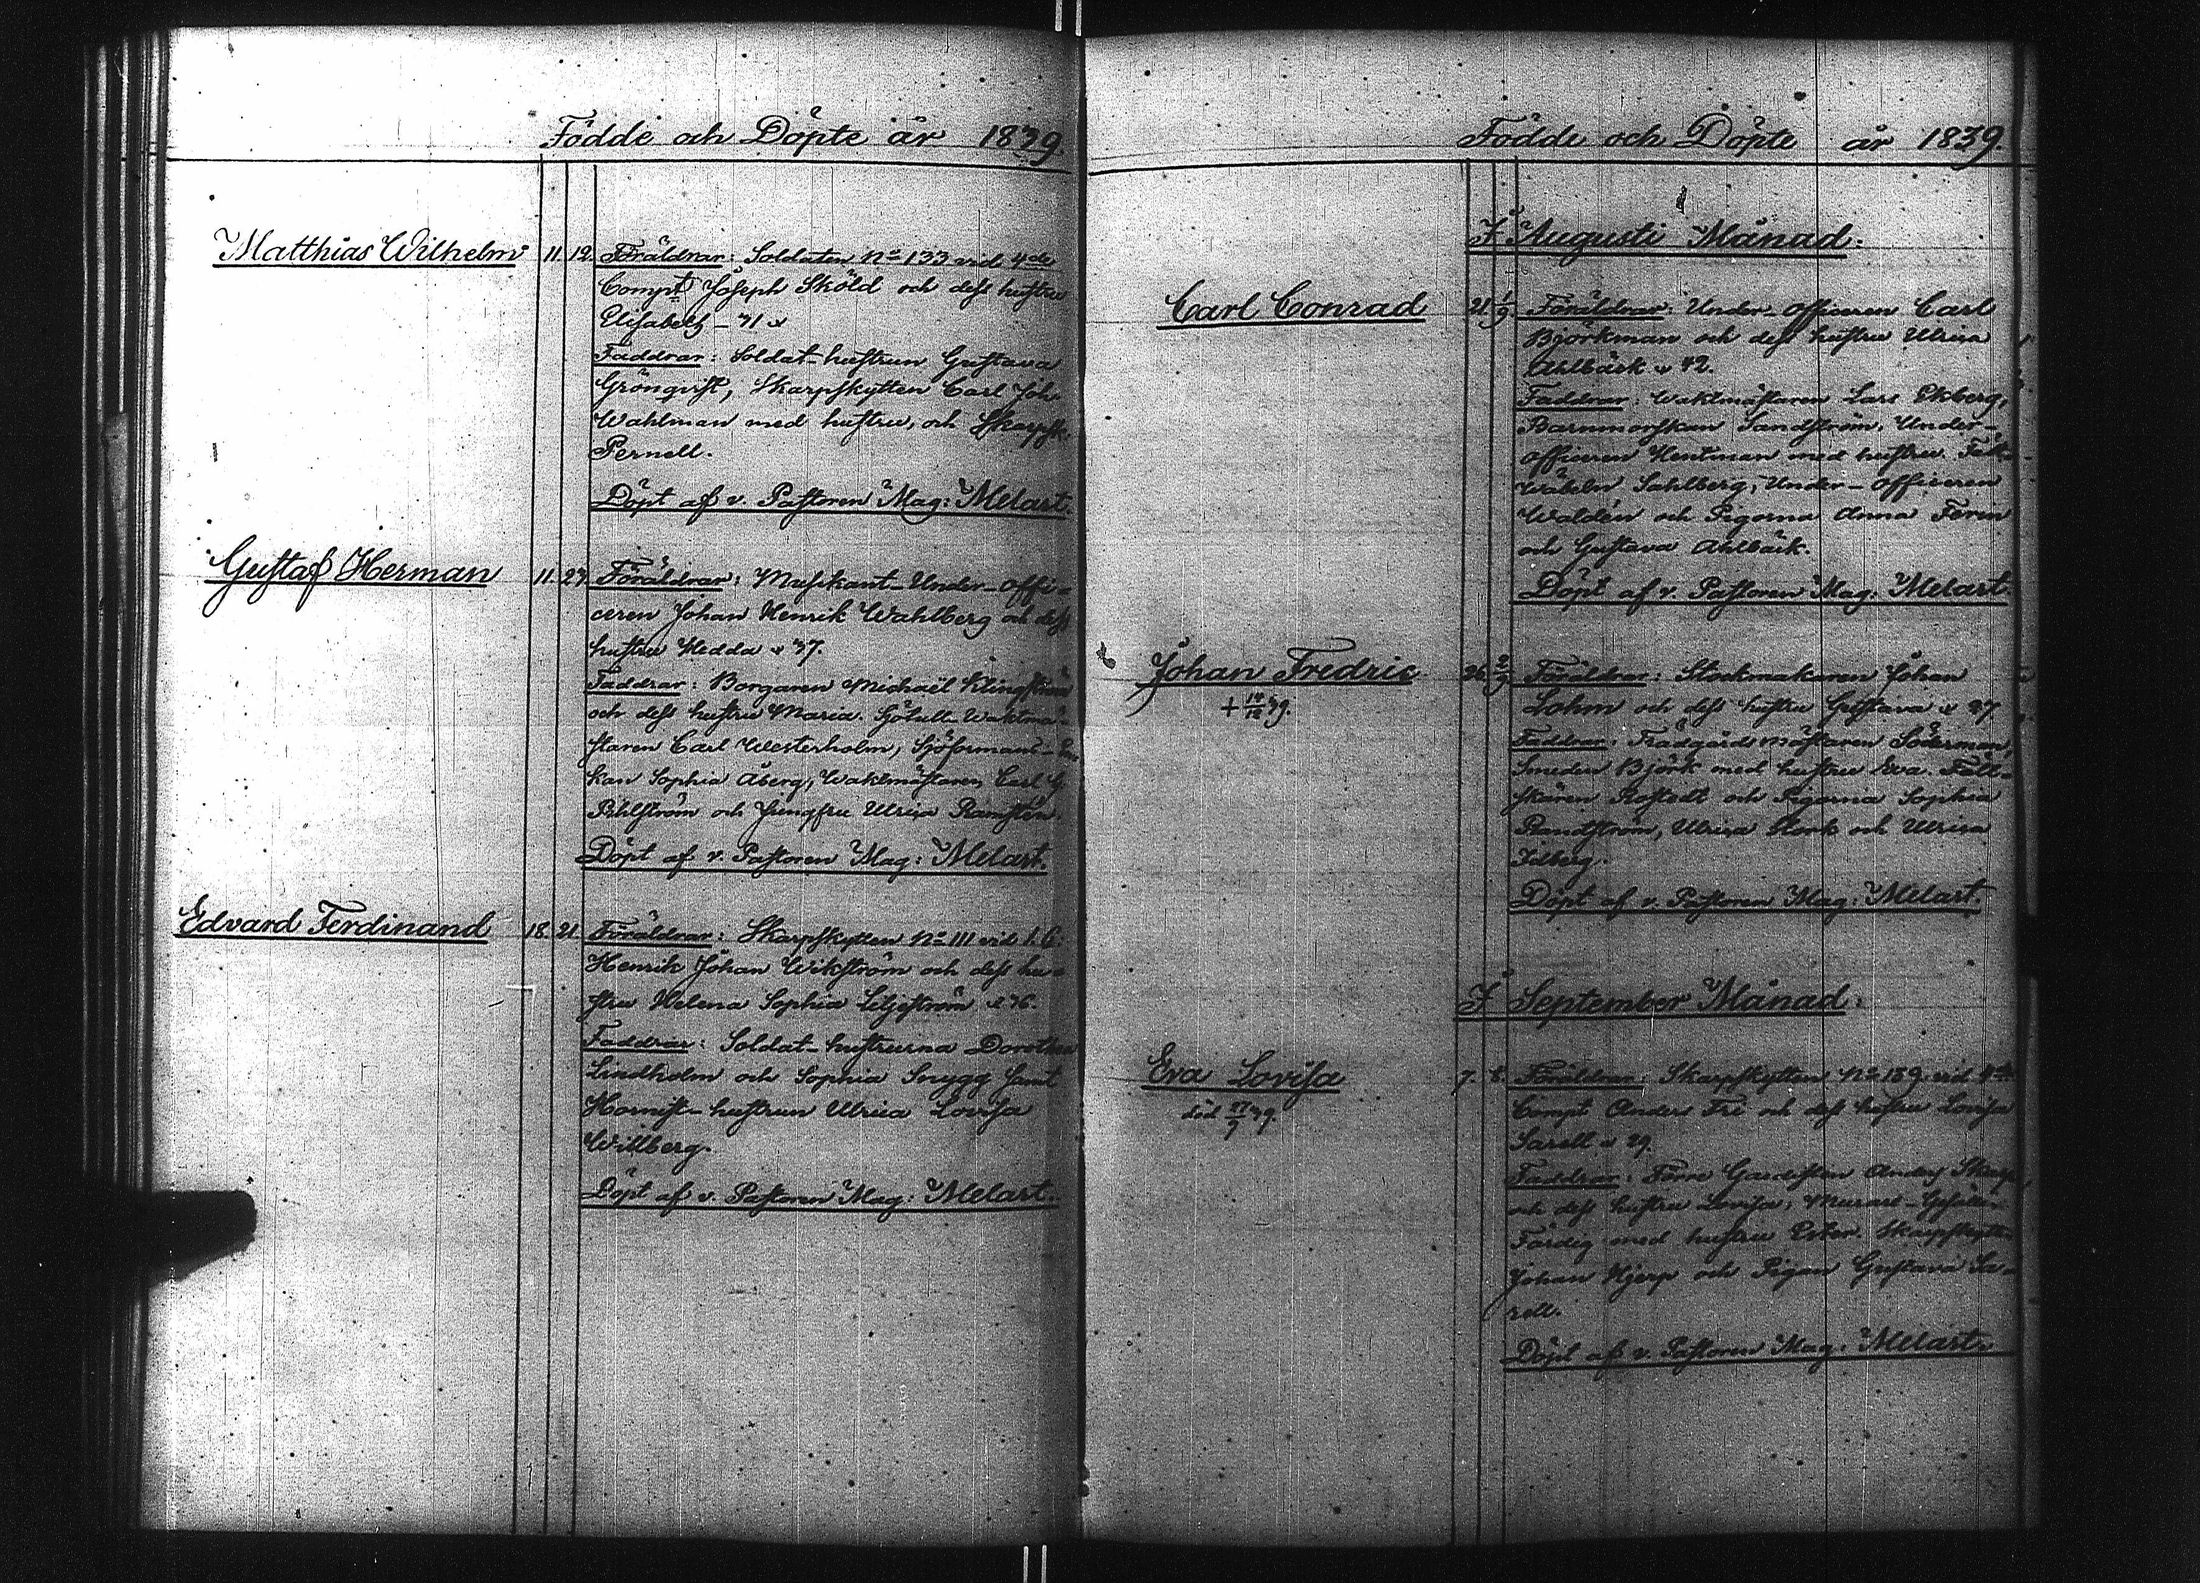 Födde och Döpte år 1839.
Matthias Wilhelm 11. 12. Föräldrar: Soldaten No 133 vid 4de
Compt Joseph Sköld och dess hustru
Elisabeth - 31
Faddrar: Soldat-hustrun Gustava
Grönqvist, Skarpskytten Carl Joh.
Wahlman med hustru, och Skarpsk.
Pernell.
Döpt af v. Pastoren Mag: Melart.
Gustaf Herman 11. 27. Föräldrar: Musikant-Under-Offi-
ceren Johan Henrik Wahlberg och dess
hustru Hedda 37.
Faddrar: Borgaren Michaël
och dess hustru Maria. Sjötull-Waktmä-
staren Carl Westerholm, Sjöformans-
kan Sophia Åberg, Waktmästaren Carl G
Pihlström och Jungfru Ulrica Ramstén.
Döpt af v. Pastoren Mag: Melart.
Edvard Ferdinand 18. 21. Föräldrar: Skarpskytten No 111 vid 1. C.
Henrik Johan Wikström och dess hu-
stru Helena Sophia Liljeström 36.
Faddrar: Soldat-hustrurna Dorothea
Lindholm och Sophia Snygg samt
Hornist-hustrun Ulrica Lovisa
Willberg.
Döpt af v. Pastoren Mag: Melart.
Födde och Döpte år 1839.
I Augusti Månad:
Carl Conrad 21. 1/9. Föräldrar: Under-Officeren Carl
Björkman och dess hustru Ulrica
Ahlbäck 42.
Faddrar: Waktmästaren Lars Ekberg,
Barnmorskan Sandström, Under-
officeren Hentman med hustru. Fält-
Wäbeln Sahlberg, Under-Officeren
Waldén och Pigorna Anna Foren
och Gustava Ahlbäck.
Döpt af v. Pastoren Mag: Melart
Johan Fredric 26. 2/9 Föräldrar: Stockmakaren Johan
+ 39.
Lohm och dess hustru Gustava 27
Faddrar: Trädgårds Mästaren Söderman,
Smeden Björk med hustru Eva. Fält-
skären Rostedt och Pigorna Sophia
Randström, Ulrica Stork och Ulrica
Idberg.
Döpt af v. Pastoren Mag: Melart.
I September Månad:
Eva Lovisa 7. 8. Föräldrar: Skarpskytten No 189 vid
död 27/9 39.
Compt Anders Fri och dess hustru Lovisa
Sarell 29.
Faddrar: Förre Gardisten Anders
och dess hustru Lovisa, Murare-Gesällen
Färdig med hustru Ester. Skarpskytt.
Johan Hjerp och Pigan Gustava Sa-
rell.
Döpt af v. Pastoren Mag: Melart.